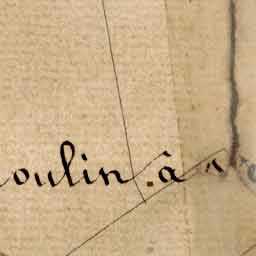 oulin. à